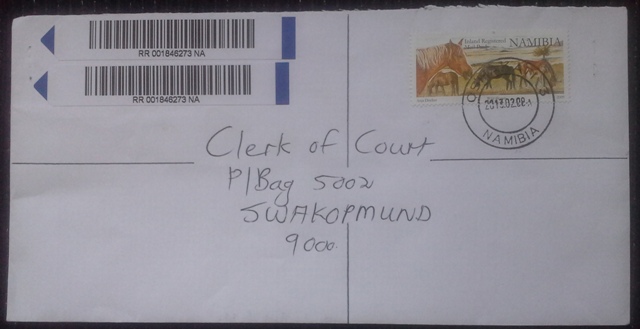 RR 001846273 NA
RR 001846273 NA
Inland Registered
Mail Paid
NAMIBIA
NAMIBIA
Clerk of Court
P/Bag 5002
SWAKOPMUND
9000